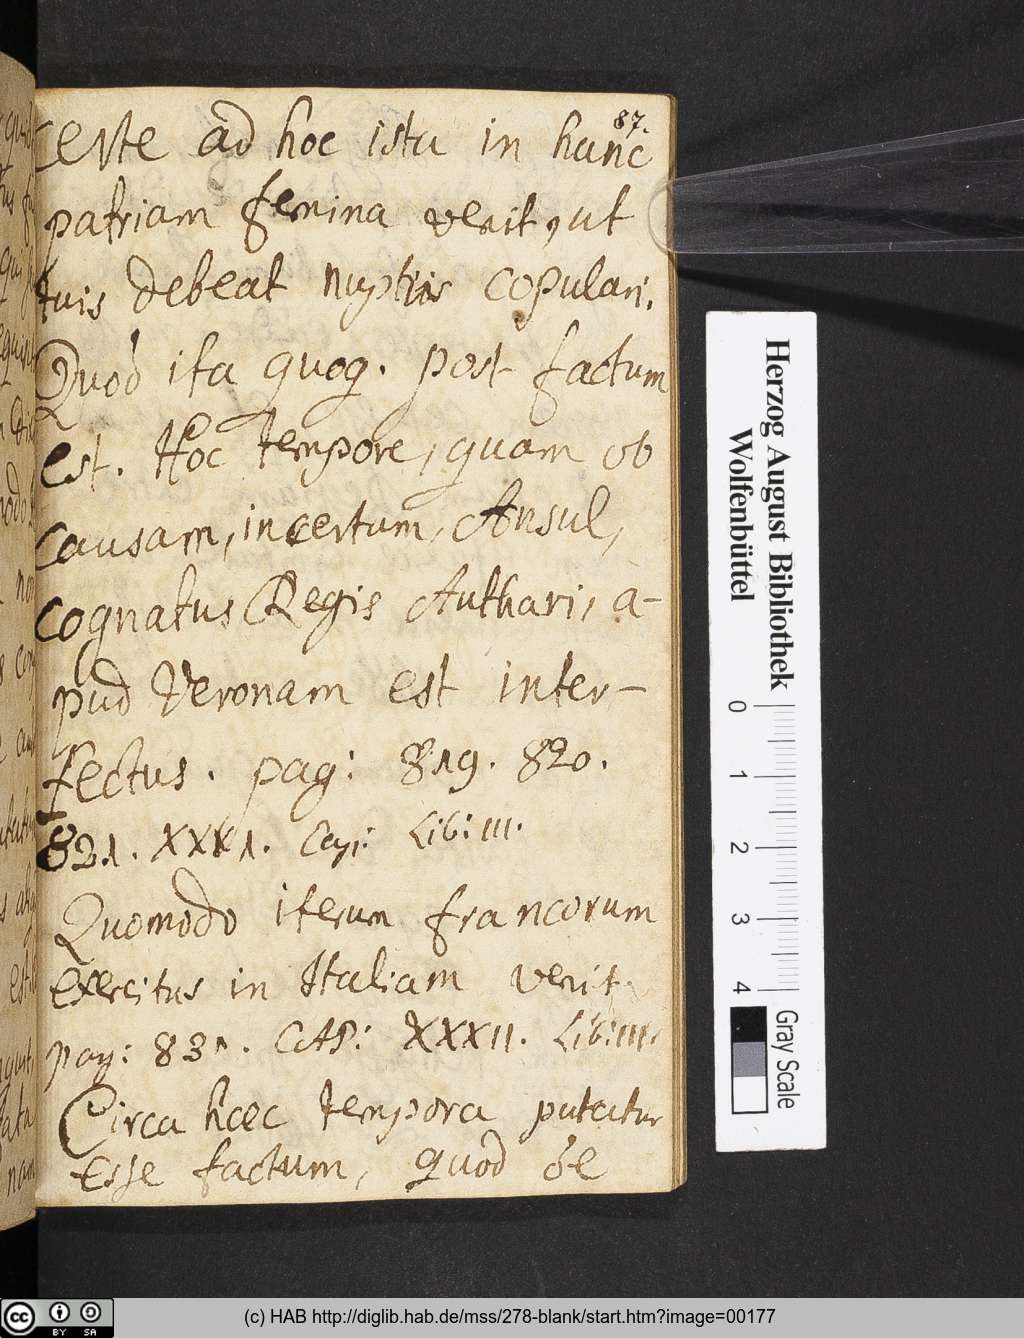 87.
certe ad hoc ista in hanc
patriam femina venit, ut
tuis debeat nuptiis copulari.
Quod ita quoq. post factum
est. Hoc tempore, quam ob
causam, incertum, Ansul,
cognatus Regis Authari, a-
pud Veronam est inter-
fectus. pag: 819. 820.
821. XXX1. Cap: Lib: III.
Quomodo iterum francorum
exercitus in Italiam venit
pag: 831. CAP: XXXII. Lib: III.
Circa haec tempora putatur
esse factum, quod de
Herzog August Bibliothek
Wolfenbüttel
0 1 2 3 4
Gray Scale
cc BY SA
(c) HAB http://diglib.hab.de/mss/278-blank/start.htm?image=00177